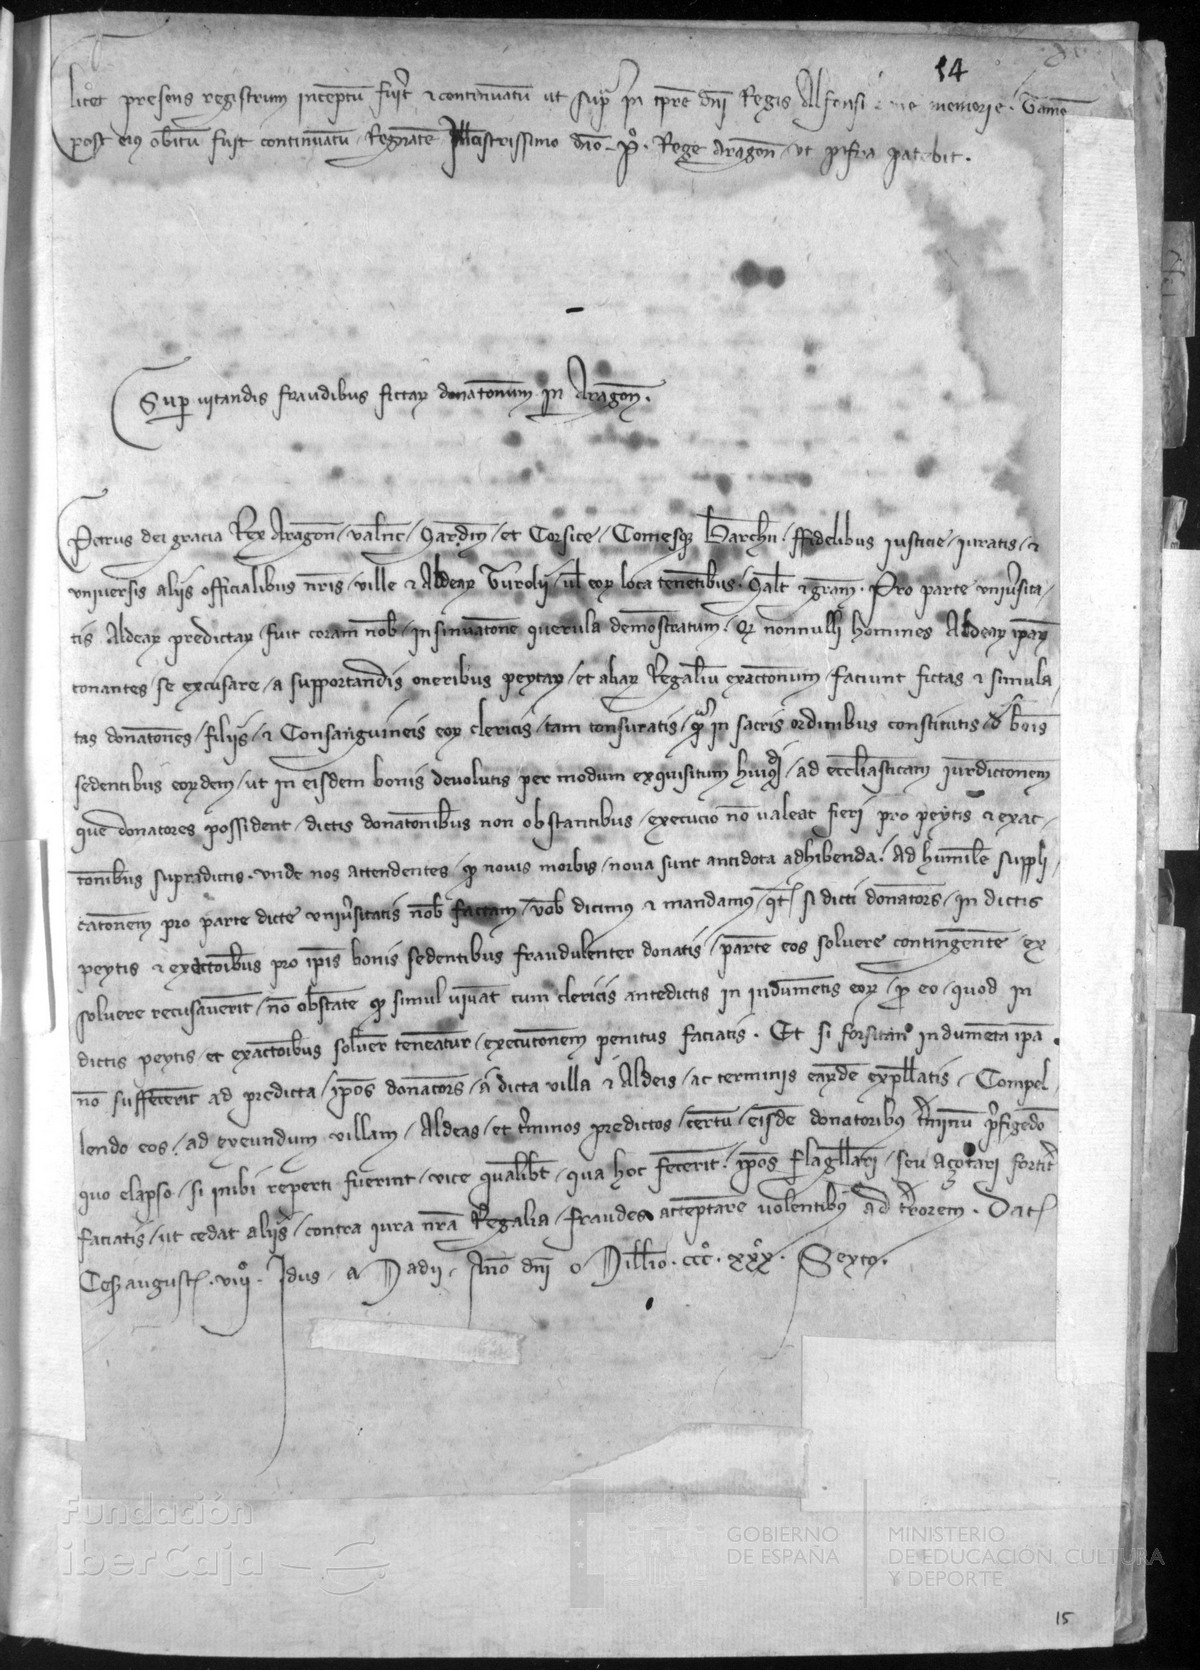 14
licet presens registrum inceptū fuit̄ & continuatū ut sup̄ in tp̄re dn̄i Regis Alfonsi memorie. Tamē
post eius obitū fuit continuatū Regnāte Illustrissimo dn̄o .P̊. Rege Aragon̄ ut infra patebit.
Sup vitandis fraudibus fictaꝝ donat̄onum in Aragon̄.
Petrus dei gracia Rex Aragon̄ / valn̄c / Sardin̄ / et Corsice / Comesqꝫ barchn̄ / ffidelibus Iusticie / iuratis / &
vniuersis aliis officialibus nr̄is / ville & Aldeaꝝ Turolii / ul̄ eoꝝ loca tenētibus. Salt̄ & gram̄. Pro parte vniūsita /
tis Aldeaꝝ predictaꝝ / fuit coram nob̄ / insinuat̄one querula demōstratum / qꝫ nonnulli homines Aldeaꝝ ip̄aꝝ
conantes / se excusare / a supportandis oneribus peytaꝝ / et aliaꝝ Regaliū exact̄onum / faciunt fictas & simula /
tas donat̄ones / filiis / & Consanguineis eoꝝ clericis / tam tonsuratis / qꝫ in sacris ordinibus constitutis / d̄ bōis
sedentibus eoꝝdem / ut in eisdem bonis devolutis per modum exquisitum huiusdi / ad eccl̄iasticam iurdict̄onem
que donatores possident / dictis donat̄onibus non obstantibus / execucio nō valeat fieri pro peytis & exac /
t̄onibus supradictis. vnde nos attendentes / qꝫ novis morbis / nova sunt antidota adhibenda. Ad humil̄e suppli /
cat̄onem pro parte dicte vniūsitatis nob̄ factam / vob̄ dicimus & mandamus / qt̄ꝫ si dicti donator̄s / in dictis
peytis & exact̄oībus pro ip̄is bonis sedentibus fraudulenter donatis / parte eos solvere contingente / ex
solvere recusaverīt / nō obstāte qꝫ simul vivāt cum clericis antedictis in indumētis eoꝝ / ꝓ eo / quod in
dictis peytis et exact̄oībus solver̄ teneātur / execut̄onem penitus faciatis. Et si forsitan indumēta ip̄a
nō suffecerīt ad predicta / ip̄os donator̄s / a dicta villa & Aldeis / ac terminis eaꝝdē expellatis / Compel /
lendo eos / ad exeundum villam / Aldeas / et t̄minos predictos / certū / eisdē donatoribus t̄minū p̄figēdo
quo elapso / si inibi reperti fuerint / vice qualib̄t / qua hoc fecerīt / ip̄os flagellari / seu açotari fortit̄
faciatis / ut cedat aliis / contra iura nr̄a Regalia / fraudes acceptare volentibus ad t̄rorem. Dat̄
Cesaraugust̄ .viiiº. Idus Madii / Anō dn̄i Mill̄io. cccº. xxxº. Sexto.
Fundación
iberCaja
GOBIERNO
DE ESPAÑA
MINISTERIO
DE EDUCACIÓN, CULTURA
Y DEPORTE
15